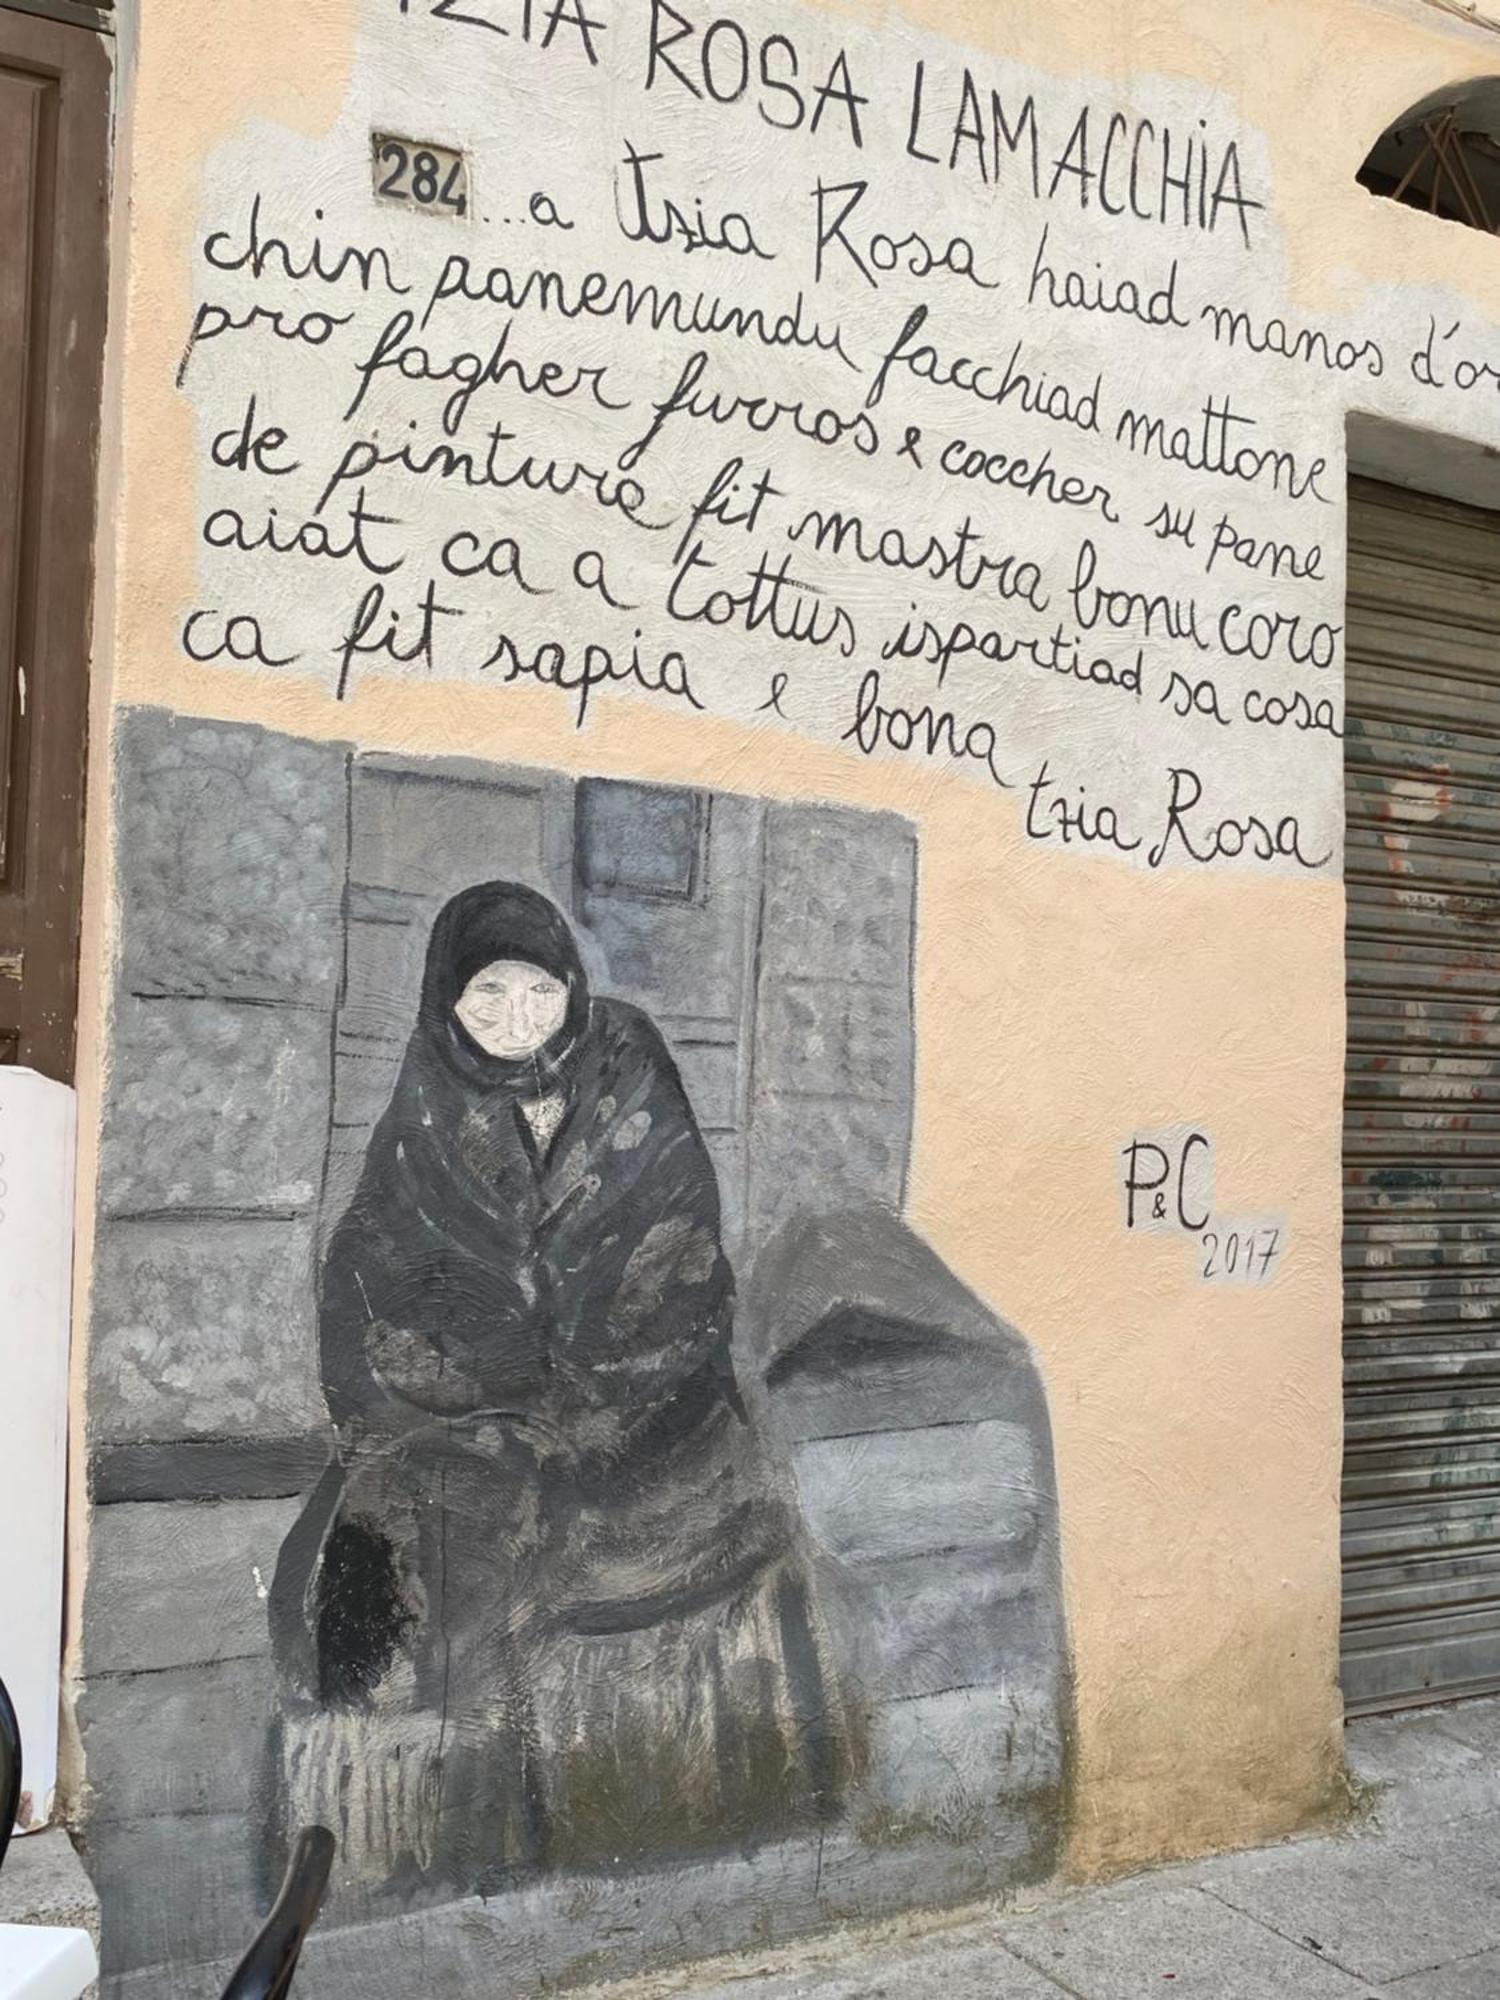 TZIA ROSA LAMACCHIA
284
...a Tzia Rosa haiad manos d'or
chin panemundu facchiad mattone
pro fagher furros e coccher su pane
de pintura fit mastra bonu coro
aiat ca a tottus ispartiad sa cosa
ca fit sapia e bona
tzia Rosa
P&C
2017